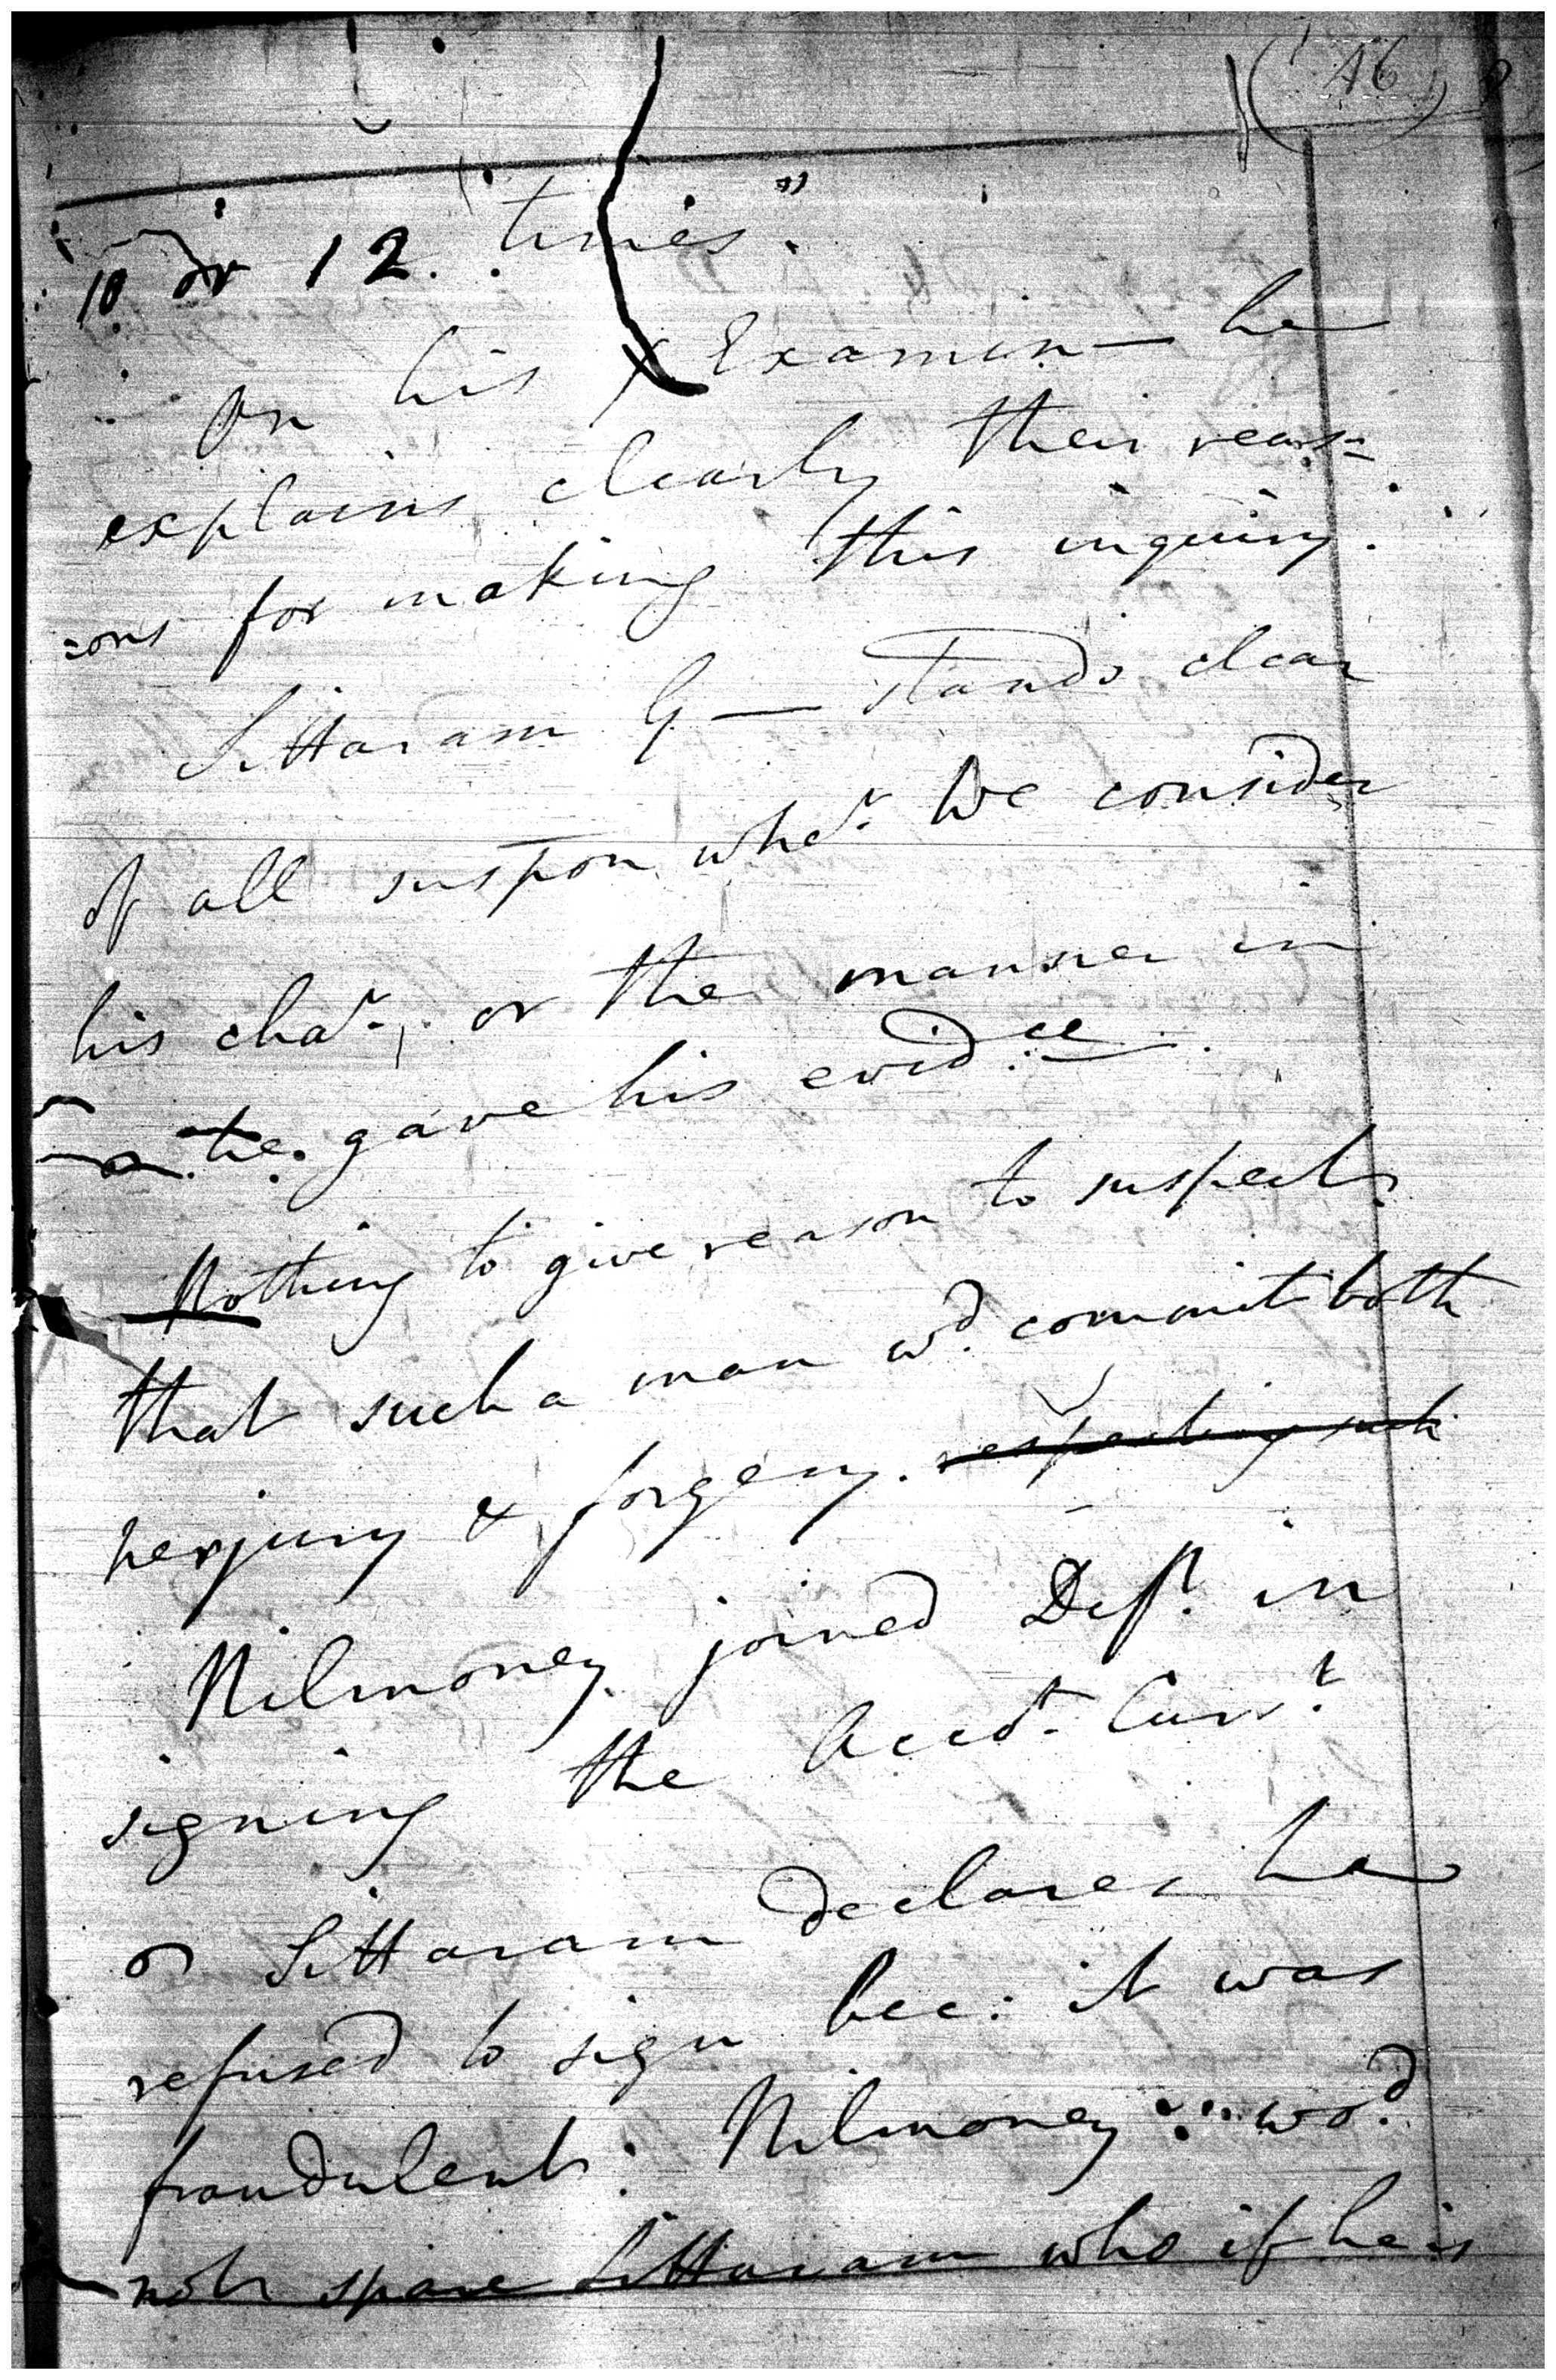 (46)
10 or 12. times."
On his X Examinn— he
explains clearly their reas=
=ons for making this inquiry.
Sittaram G— stands clear
of all suspon whr. we consider
his char., or the manner in
he gave his evid.ce
Nothing to give reason to suspect
that such a man wd. commit both
perjury & forgery. respecting such
Nilmoney joined Deft. in
signing the Acct. Curr.t
Sittaram declares he
refused to sign bec: it was
fraudulent. Nilmoney wod.
not spare Sittaram who if he is